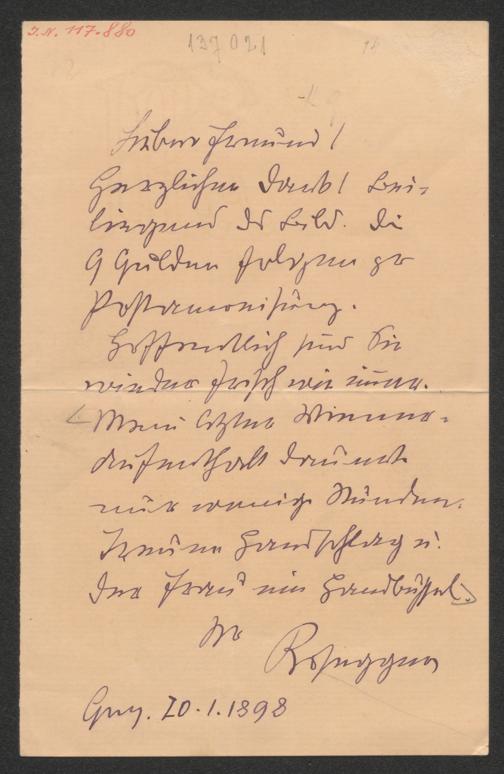 I.N. 117.880
137021
Lieber Freund!
Herzlichen Dank! Bei-
liegend ds Bild. Die
9 Gulden folgen per
Postanweisung.
Hoffentlich sind Sie
wieder frisch wie immer.
Mein letzter Wiener-
aufenthalt dauerte
nur wenige Stunden.
Treuen Handschlag u.
der Frau ein Handbussel
Ihr
Rosegger
Graz. 20.1.1898